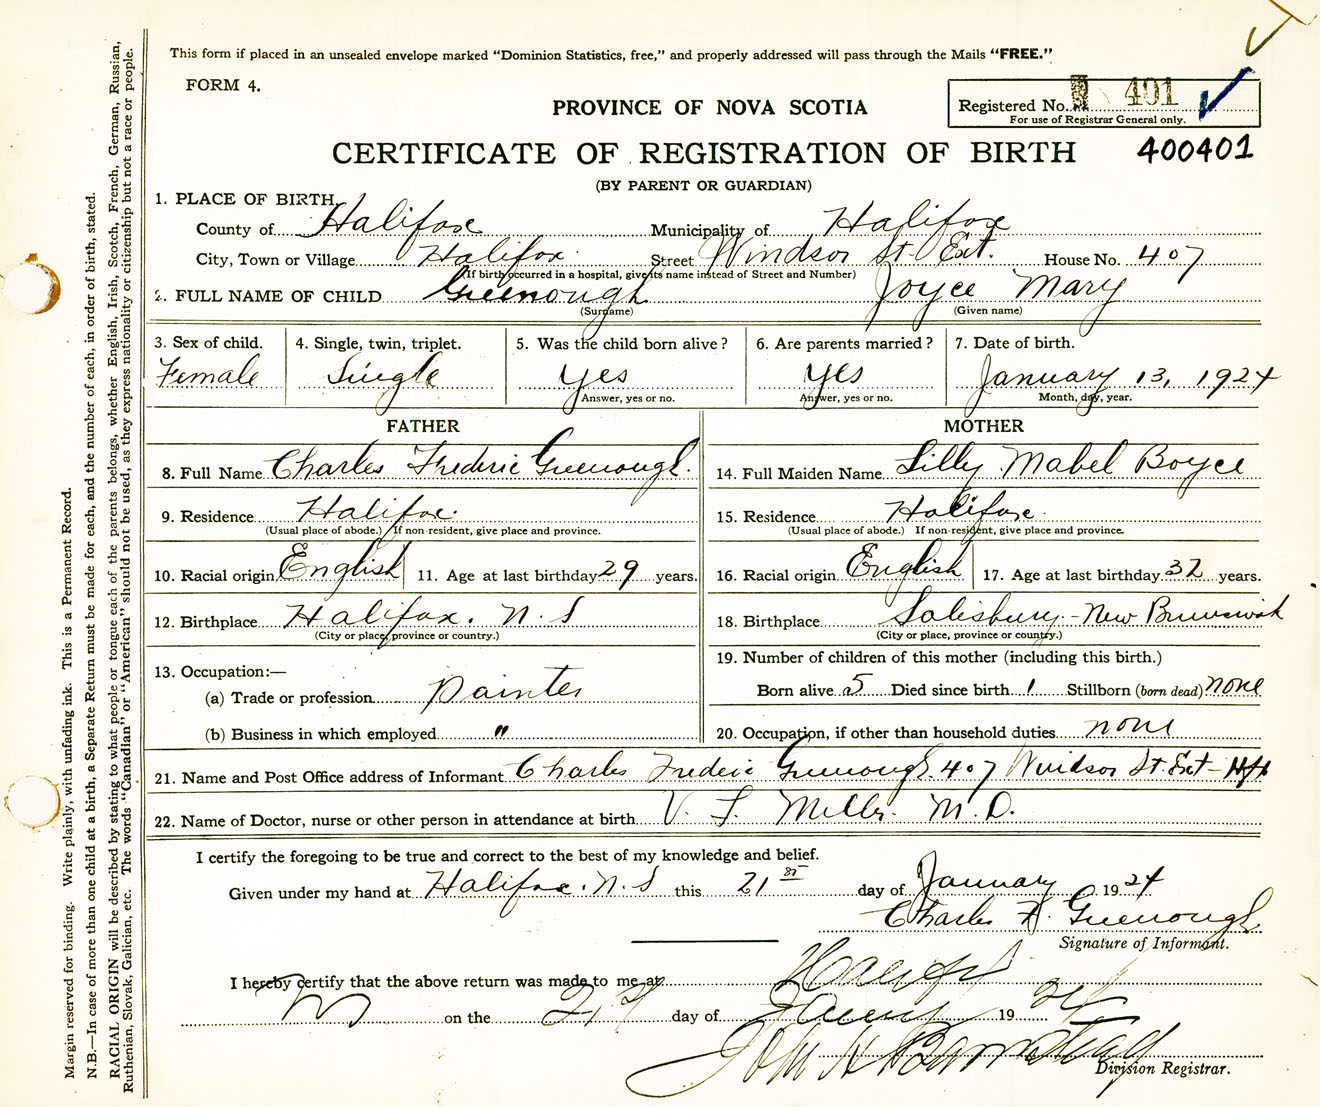 This form if placed in an unsealed envelope marked "Dominion Statistics, free," and properly addressed will pass through the Mails "FREE."
FORM 4.
Registered No. 401
For use of Registrar General only.
PROVINCE OF NOVA SCOTIA
CERTIFICATE OF REGISTRATION OF BIRTH 400401
(BY PARENT OR GUARDIAN)
1. PLACE OF BIRTH
County of Halifax Municipality of Halifax
City, Town or Village Halifax Street Windsor St. Ext. House No. 407
(If birth occurred in a hospital, give its name instead of Street and Number)
2. FULL NAME OF CHILD Greenough Joyce Mary
(Surname) (Given name)
3. Sex of child. 4. Single, twin, triplet. 5. Was the child born alive? 6. Are parents married? 7. Date of birth.
Female Single Yes Yes January 13, 1924
Answer, yes or no. Answer, yes or no. Month, day, year.
FATHER MOTHER
8. Full Name Charles Frederic Greenough. 14. Full Maiden Name Lilly Mabel Boyce
9. Residence Halifax. 15. Residence Halifax.
(Usual place of abode.) If non-resident, give place and province. (Usual place of abode.) If non-resident, give place and province.
10. Racial origin English 11. Age at last birthday 29 years. 16. Racial origin English 17. Age at last birthday 32 years.
12. Birthplace Halifax. N. S 18. Birthplace Salisbury - New Brunswick
(City or place, province or country.) (City or place, province or country.)
13. Occupation:— 19. Number of children of this mother (including this birth.)
(a) Trade or profession Painter Born alive 5 Died since birth 1 Stillborn (born dead) none
(b) Business in which employed " 20. Occupation, if other than household duties none
21. Name and Post Office address of Informant Charles Frederic Greenough. 407 Windsor St. Ext - Hfx
22. Name of Doctor, nurse or other person in attendance at birth V. L. Miller. M. D.
I certify the foregoing to be true and correct to the best of my knowledge and belief.
Given under my hand at Halifax. N. S this 21st day of January 1924
Charles F. Greenough
Signature of Informant.
I hereby certify that the above return was made to me at Halifax
on the day of 19 24
John Barnstead
Division Registrar.
Margin reserved for binding. Write plainly, with unfading ink. This is a Permanent Record.
N.B.—In case of more than one child at a birth, a Separate Return must be made for each, and the number of each, in order of birth, stated.
RACIAL ORIGIN will be described by stating to what people or tongue each of the parents belongs, whether English, Irish, Scotch, French, German, Russian,
Ruthenian, Slovak, Galician, etc. The words "Canadian" or "American" should not be used, as they express nationality or citizenship but not a race or people.